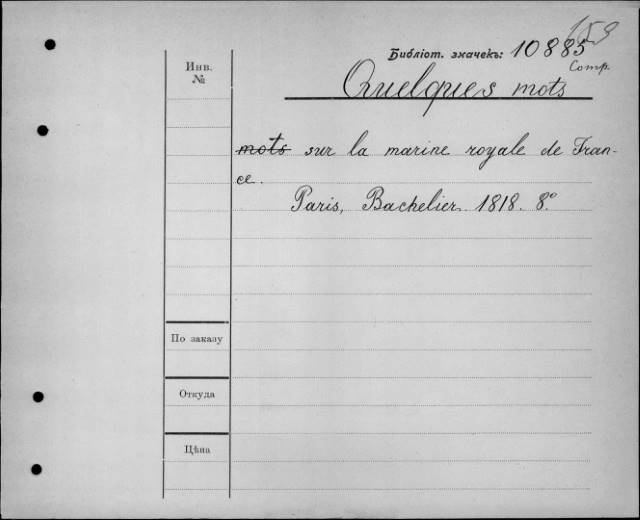 159
Библіот. значекъ: 10885
Comp.
Инв.
№
Quelques mots
mots sur la marine royale de Fran-
ce.
Paris, Bachelier. 1818. 8º
По заказу
Откуда
Цѣна